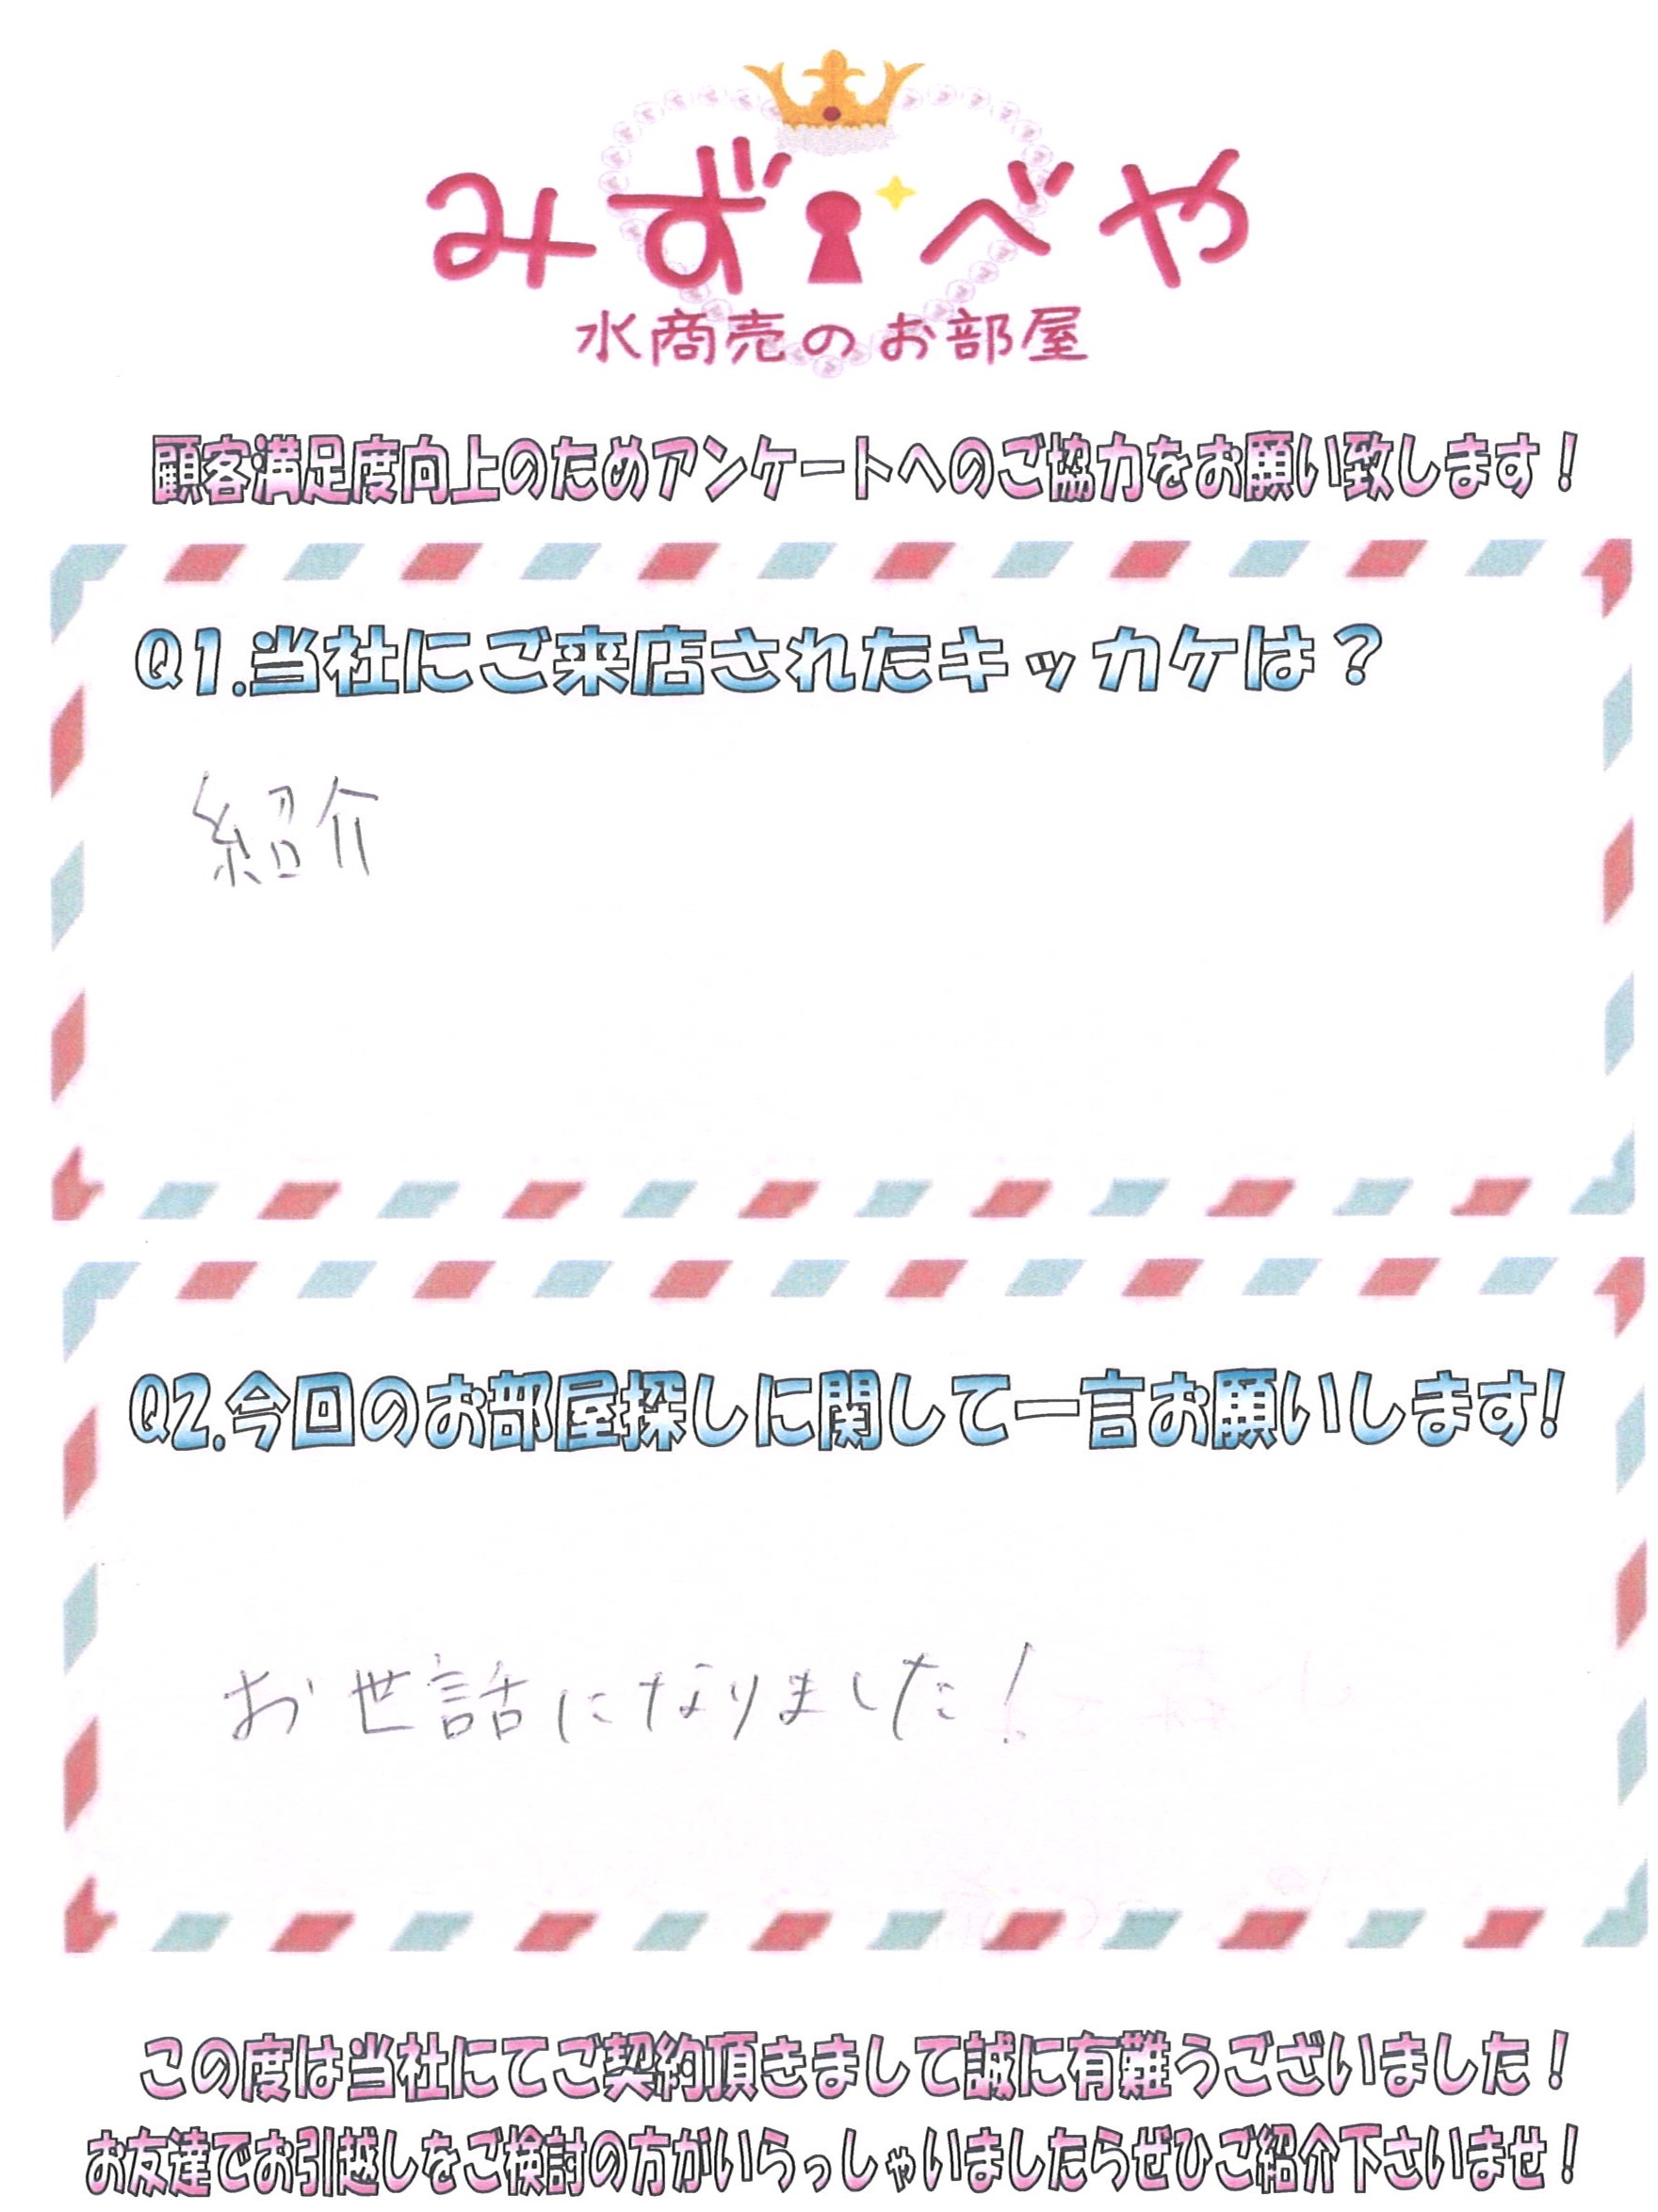 みずべや
水商売のお部屋
顧客満足度向上のためアンケートへのご協力をお願い致します！
Q1.当社にご来店されたキッカケは？
紹介
Q2.今回のお部屋探しに関して一言お願いします!
お世話になりました！
この度は当社にてご契約頂きまして誠に有難うございました！
お友達でお引越しをご検討の方がいらっしゃいましたらぜひご紹介下さいませ！